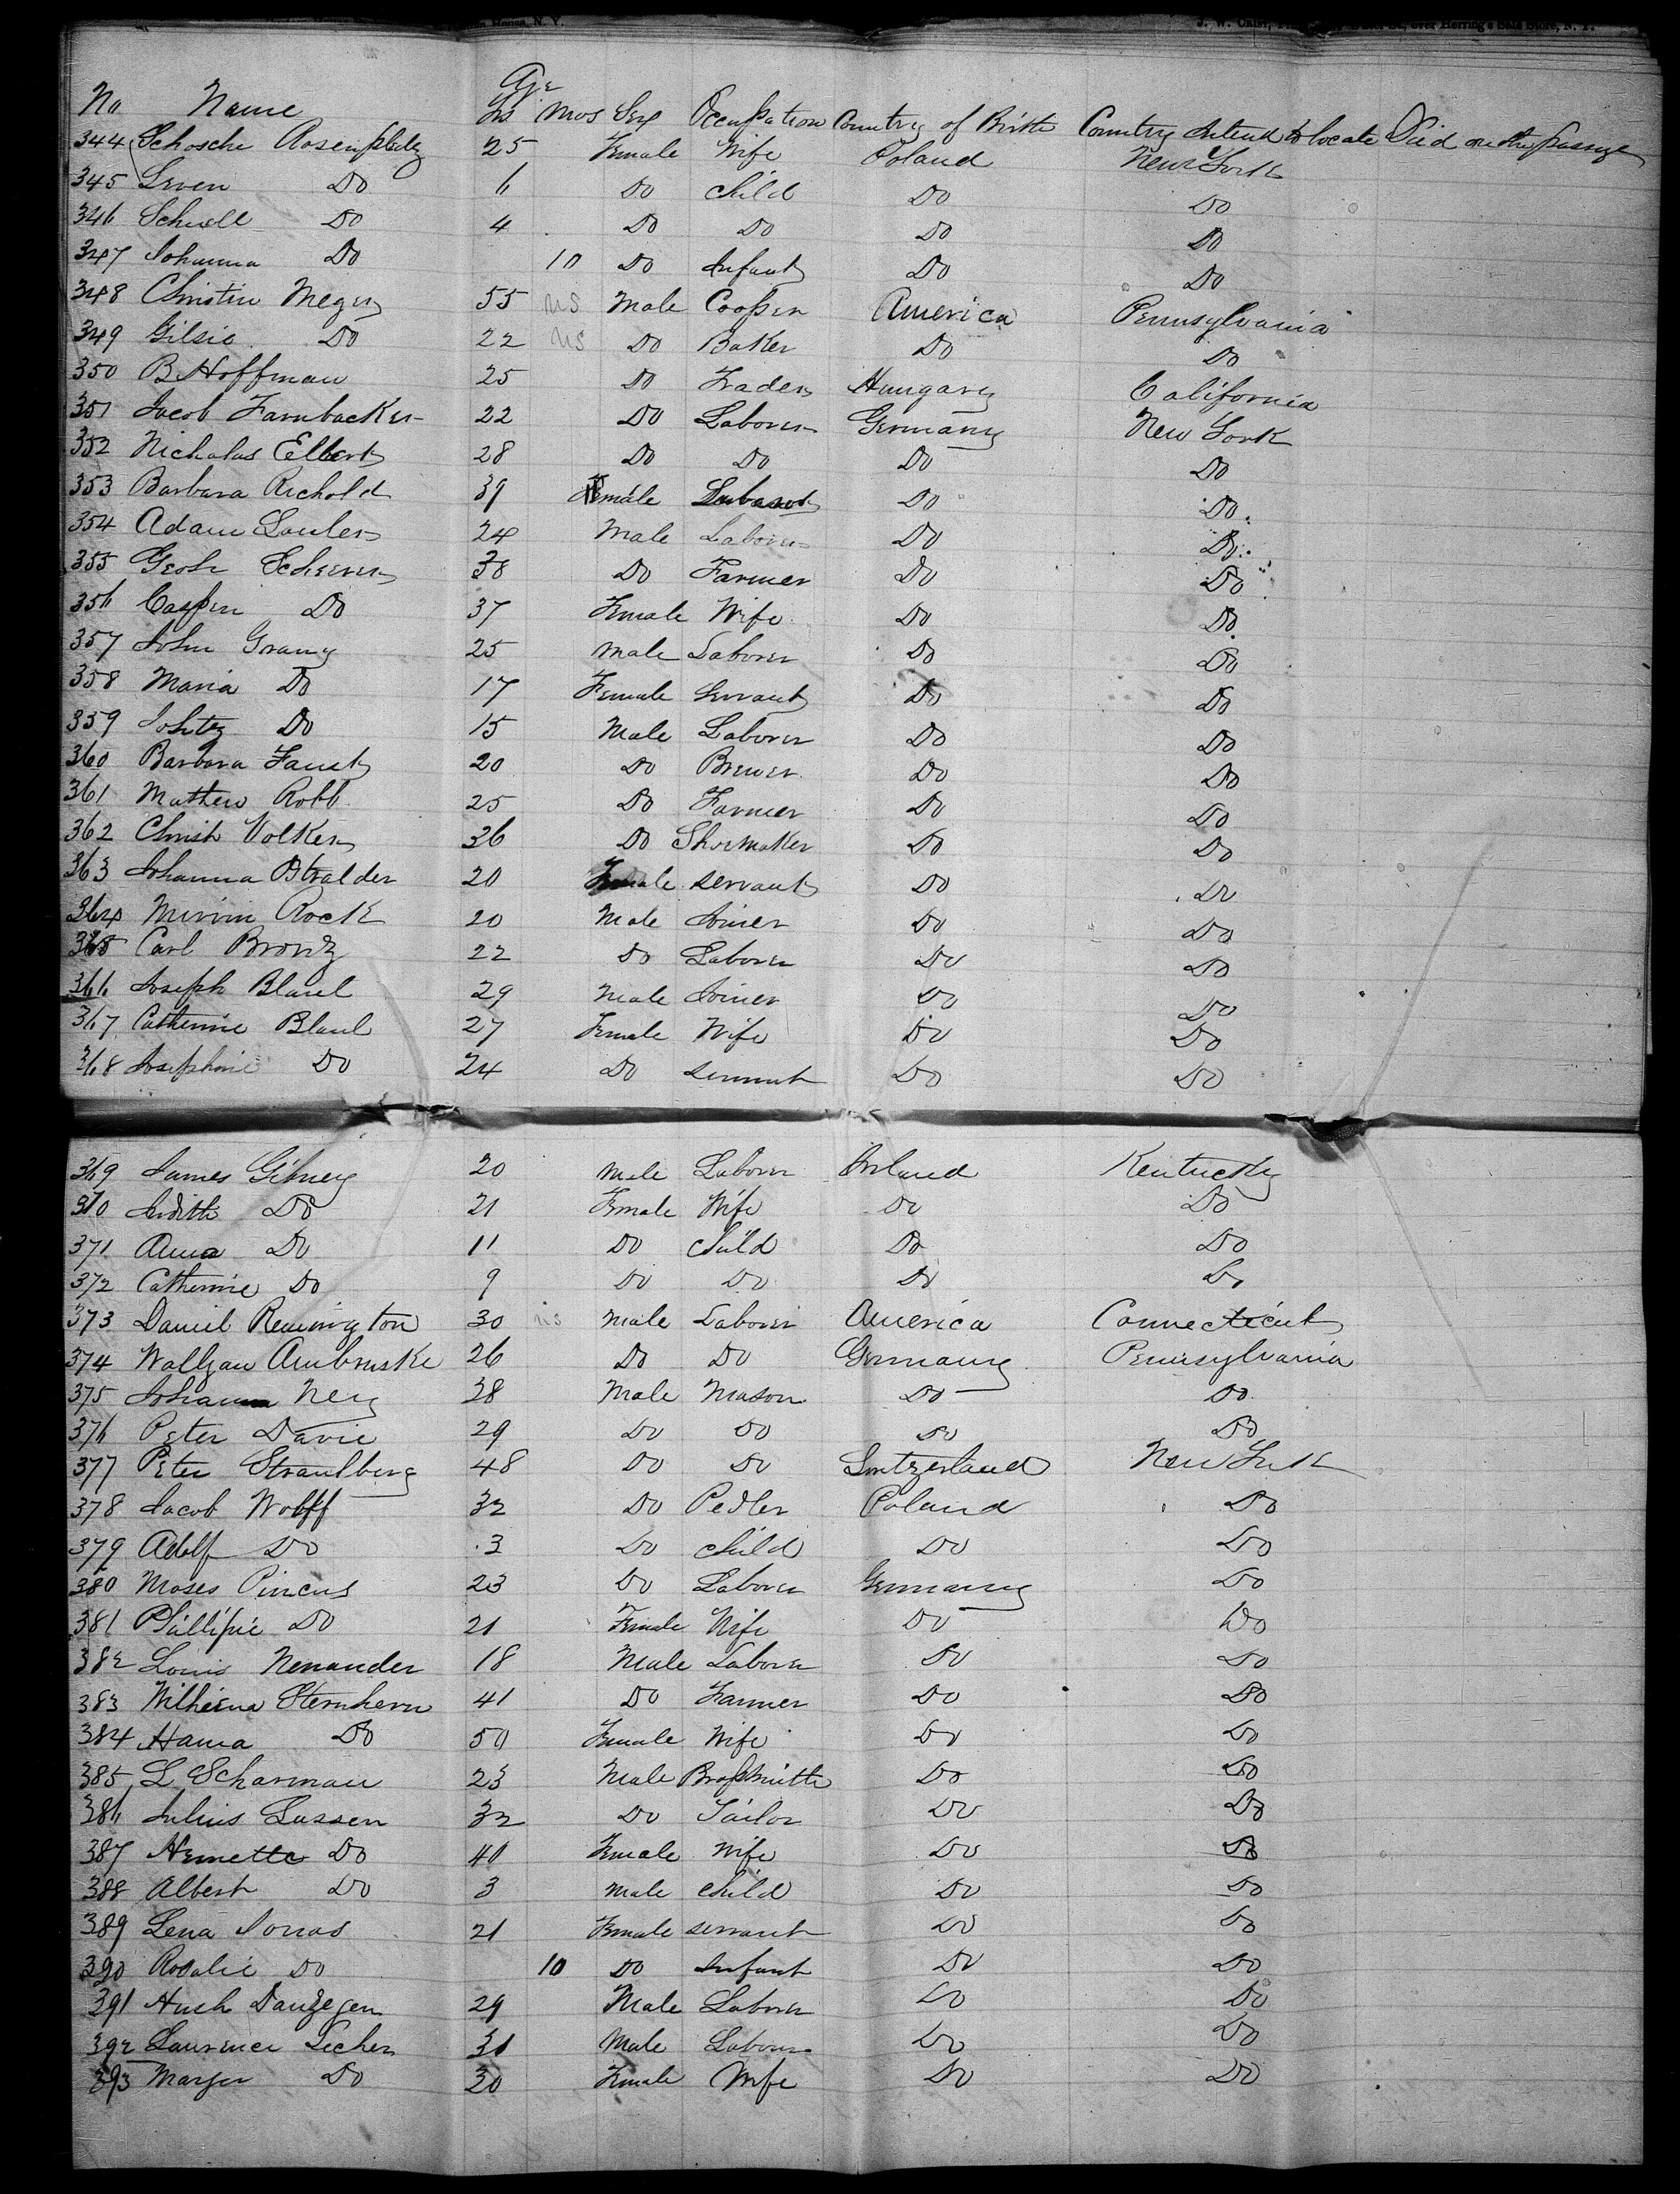 House, N. Y. J. W. over Herring's Safe Store, N. Y.
Age
No Name Yrs Mos Sex Occupation Country of Birth Country Intend to locate Died on the passage
344 Schosche 25 Female Wife Poland New York
345 Leven Do 6 Do Child Do Do
346 Do 4 Do Do Do Do
347 Johanna Do 10 Do Infant Do Do
348 Christin Meyer 55 US Male Cooper America Pennsylvania
349 Gilsie Do 22 US Do Baker Do Do
350 B Hoffman 25 Do Trader Hungary California
351 Jacob Farnbacker 22 Do Laborer Germany New York
352 Nicholas Ellert 28 Do Do Do Do
353 Barbara Richold 39 Female Do Do
354 Adam 24 Male Laborer Do Do
355 Geoh Scherrer 38 Do Farmer Do Do
356 Casper Do 37 Female Wife Do Do
357 John Grany 25 Male Laborer Do Do
358 Maria Do 17 Female Servant Do Do
359 Do 15 Male Laborer Do Do
360 Barbara Faust 20 Do Brewer Do Do
361 Mathew Robb 25 Do Farmer Do Do
362 Christ Volker 36 Do Shoemaker Do Do
363 Johanna Stralder 20 Female servant Do Do
364 Rock 20 Male Joiner Do Do
365 Carl Brontz 22 Do Laborer Do Do
366 Joseph Blaul 29 Male Joiner Do Do
367 Catherine Blaul 27 Female Wife Do Do
368 Josephine Do 24 Do servant Do Do
369 James Gibney 20 Male Laborer Irland Kentucky
370 Judith Do 21 Female Wife Do Do
371 Anna Do 11 Do Child Do Do
372 Catherine Do 9 Do Do Do Do
373 Daniel Remington 30 US Male Laborer America Connecticut
374 Ambruske 26 Do Do Germany Pennsylvania
375 Johann Ney 38 Male Mason Do Do
376 Peter Davie 29 Do Do Do Do
377 Peter Straulberg 48 Do Do Switzerland New York
378 Jacob Wolff 32 Do Pedler Poland Do
379 Adolf Do 3 Do Child Do Do
380 Moses Pincus 23 Do Laborer Germany Do
381 Phillipie Do 21 Female Wife Do Do
382 Louis Nenander 18 Male Laborer Do Do
383 Sternhern 41 Do Farmer Do Do
384 Hanna Do 50 Female Wife Do Do
385 L Scharman 23 Male Do Do
386 Julius Lassen 32 Do Tailor Do Do
387 Do 40 Female Wife Do Do
388 Albert Do 3 Male Child Do Do
389 Lena Jonas 21 Female servant Do Do
390 Rosalie Do 10 Do Infant Do Do
391 29 Male Laborer Do Do
392 Laurence Lecher 31 Male Laborer Do Do
393 Do 30 Female Wife Do Do